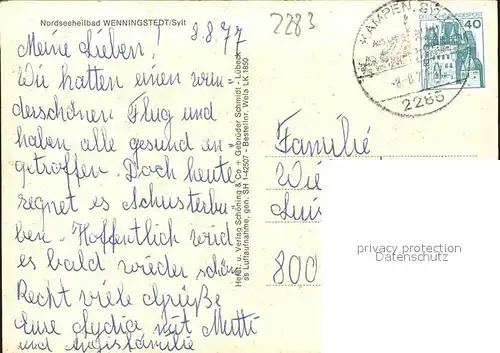 Nordseeheilbad WENNINGSTEDT/Sylt
2283
Meine Lieben! 8.8.77
Wir hatten einen wun-
derschönen Flug und
haben alle gesund an-
getroffen. Doch heute
regnet es Schusterbu-
ben. Hoffentlich wird
es bald wieder schön.
Recht viele Grüße
Eure Lydia mit Mutti
und
Herst. u. Verlag Schöning & Co + Gebrüder Schmidt - Lübeck
ss Luftaufnahme, gen. SH 1-42507 - Bestellnr. Wela LK 1850
KAMPEN, SYLT
2285
DEUTSCHE BUNDESPOST
40
Familie
Wie
Luis
800
privacy protection
Datenschutz